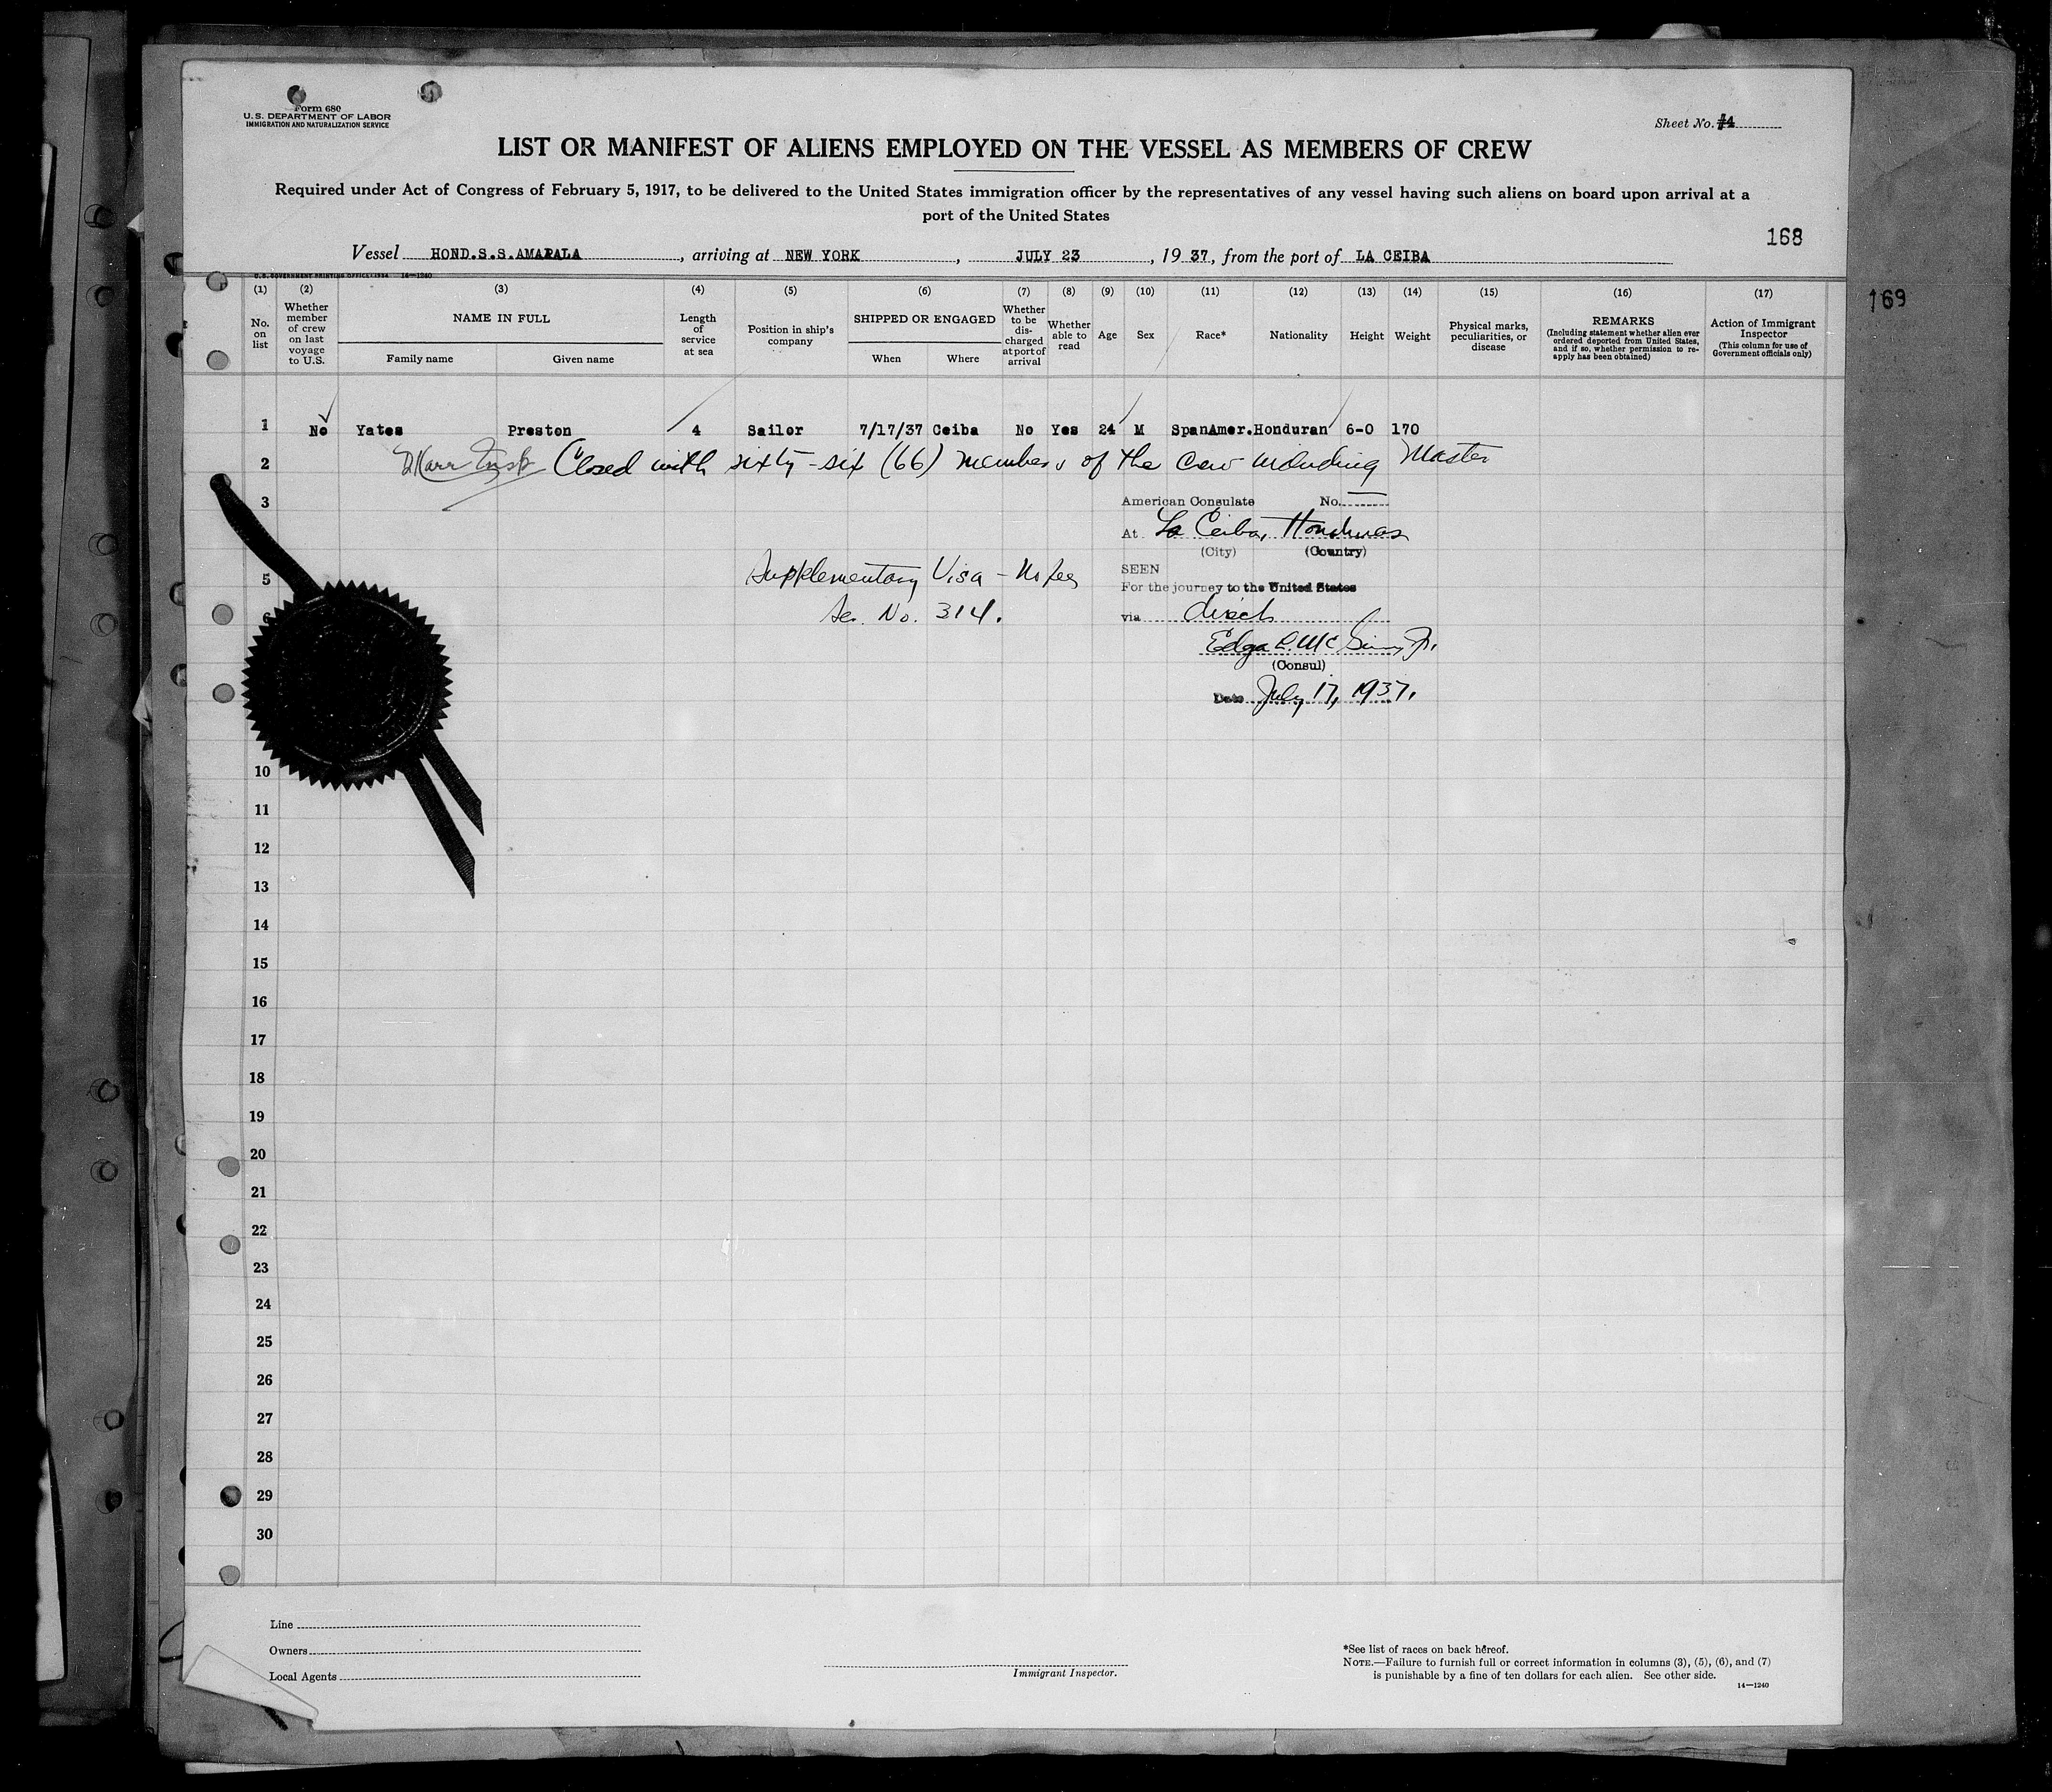 Form 680
U.S. DEPARTMENT OF LABOR
IMMIGRATION AND NATURALIZATION SERVICE
Sheet No. 4
LIST OR MANIFEST OF ALIENS EMPLOYED ON THE VESSEL AS MEMBERS OF CREW
Required under Act of Congress of February 5, 1917, to be delivered to the United States immigration officer by the representatives of any vessel having such aliens on board upon arrival at a
port of the United States
168
Vessel HOND.S.S.AMAPALA, arriving at NEW YORK, JULY 23, 1937, from the port of LA CEIBA
U.S. GOVERNMENT PRINTING OFFICE: 1934 14—1240
169
(1) (2) (3) (4) (5) (6) (7) (8) (9) (10) (11) (12) (13) (14) (15) (16) (17)
No. on list
Whether member of crew on last voyage to U.S.
NAME IN FULL
Family name Given name
Length of service at sea
Position in ship's company
SHIPPED OR ENGAGED
When Where
Whether to be dis-charged at port of arrival
Whether able to read
Age
Sex
Race*
Nationality
Height
Weight
Physical marks, peculiarities, or disease
REMARKS
(Including statement whether alien ever ordered deported from United States, and if so, whether permission to re-apply has been obtained)
Action of Immigrant Inspector
(This column for use of Government officials only)
1 No Yates Preston 4 Sailor 7/17/37 Ceiba No Yes 24 M SpanAmer. Honduran 6-0 170
2 Closed with sixty-six (66) members of the crew including Master
3 American Consulate No.
At La Ceiba, Honduras
(City) (Country)
5 Supplementary Visa - No fee SEEN
For the journey to the United States
6 Ser. No. 314. via direct
Edgar
(Consul)
Date July 17, 1937.
10
11
12
13
14
15
16
17
18
19
20
21
22
23
24
25
26
27
28
29
30
Line
Owners
Local Agents
Immigrant Inspector.
*See list of races on back hereof.
NOTE.—Failure to furnish full or correct information in columns (3), (5), (6), and (7)
is punishable by a fine of ten dollars for each alien. See other side.
14—1240